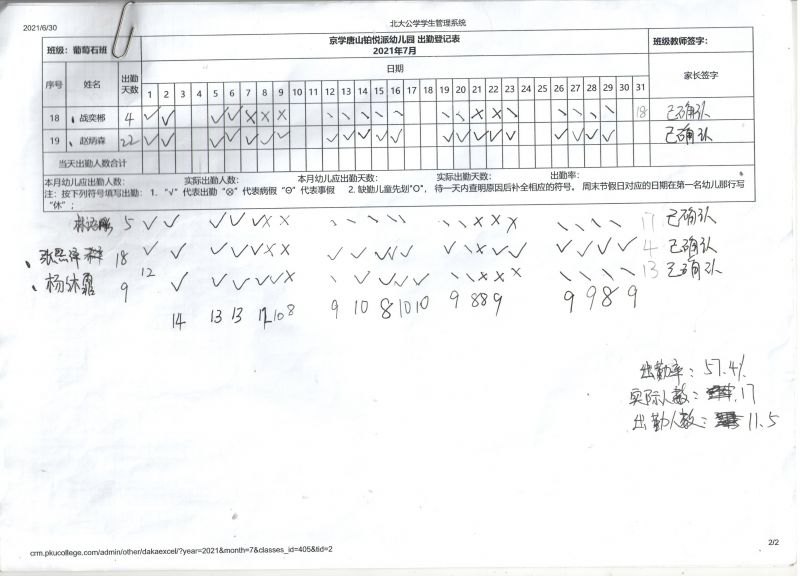 2021/6/30 北大公学学生管理系统
京学唐山铂悦派幼儿园 出勤登记表
2021年7月
班级：葡萄石班 班级教师签字：
序号 姓名 出勤天数 日期 家长签字
1 2 3 4 5 6 7 8 9 10 11 12 13 14 15 16 17 18 19 20 21 22 23 24 25 26 27 28 29 30 31
18 战奕郴 4 √ √ √ √ × × × \ \ \ \ \ \ \ × × \ \ \ \ \ 18 已确认
19 赵炳森 22 √ √ √ √ √ √ √ √ √ √ √ √ √ √ √ √ √ √ √ √ √ 已确认
当天出勤人数合计
本月幼儿应出勤人数： 实际出勤人数： 本月幼儿应出勤天数： 实际出勤天数： 出勤率：
注：按下列符号填写出勤：1.“√”代表出勤“⊗”代表病假“Θ”代表事假 2.缺勤儿童先划"O"，待一天内查明原因后补全相应的符号。 周末节假日对应的日期在第一名幼儿那行写
“休”；
5 √ √ √ √ √ × × \ \ \ \ \ \ \ × × × \ \ \ \ 17 已确认
18 √ √ √ √ √ × × √ √ √ √ √ √ \ × √ √ √ √ √ √ 4 已确认
杨 9 12 √ √ √ √ √ × \ √ √ √ √ \ \ × × × \ \ \ \ 13 已确认
14 13 13 12 10 8 9 10 8 10 10 9 8 8 9 9 9 8 9
出勤率：57.4%
实际人数：17
出勤人数：11.5
crm.pkucollege.com/admin/other/dakaexcel/?year=2021&month=7&classes_id=405&tid=2 2/2